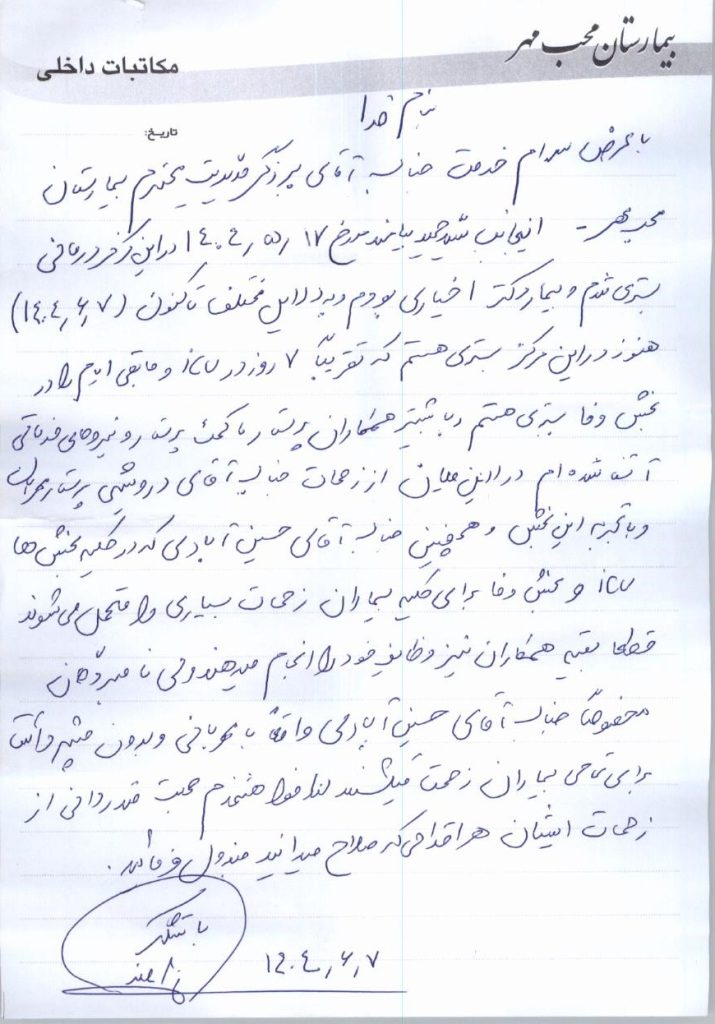 بیمارستان محب مهر
مکاتبات داخلی
بنام خدا
تاریخ:
با عرض سلام خدمت جناب آقای مدیریت محترم بیمارستان
محب مهر - اینجانب سید مورخ ۱۴۰۴/۰۵/۱۷ در این مرکز درمانی
بستری شدم و بیمار دکتر اخیاری بودم و به دلایل مختلف تاکنون (۱۴۰۴/۶/۷)
هنوز در این مرکز بستری هستم که تقریباً ۷ روز در icu و مابقی ایام را در
بخش وفا بستری هستم و با بیشتر همکاران پرستار یا کمک پرستار و نیروهای خدماتی
آشنا شده ام در این میان از زحمات جناب آقای درویشی پرستار مهربان
و با تجربه این بخش و همچنین جناب آقای حسین آبادی که در کلیه بخش ها
icu و بخش وفا برای کلیه بیماران زحمات بسیاری را متحمل می شوند
قطعا بقیه همکاران نیز وظایف خود را انجام میدهند ولی نامبردگان
مخصوصاً جناب آقای حسین آبادی واقعاً با مهربانی و بدون چشم داشت
برای تمامی بیماران زحمت میکشند لذا خواهشمندم جهت قدردانی از
زحمات ایشان هر اقدامی که صلاح میدانید مبذول فرمائید.
با تشکر
۱۴۰۴/۶/۷